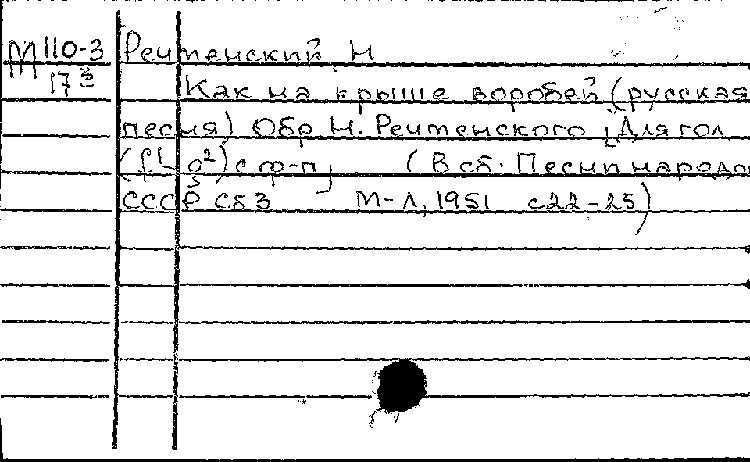 М110-3 Речменский Н
17з Как на крыше воробей (русская
песня) Обр Н. Речменского [Для гол
(f1-g2) с ф-п] (В сб: Песни народов
СССР Сб 3 М-Л, 1951 с22-25)